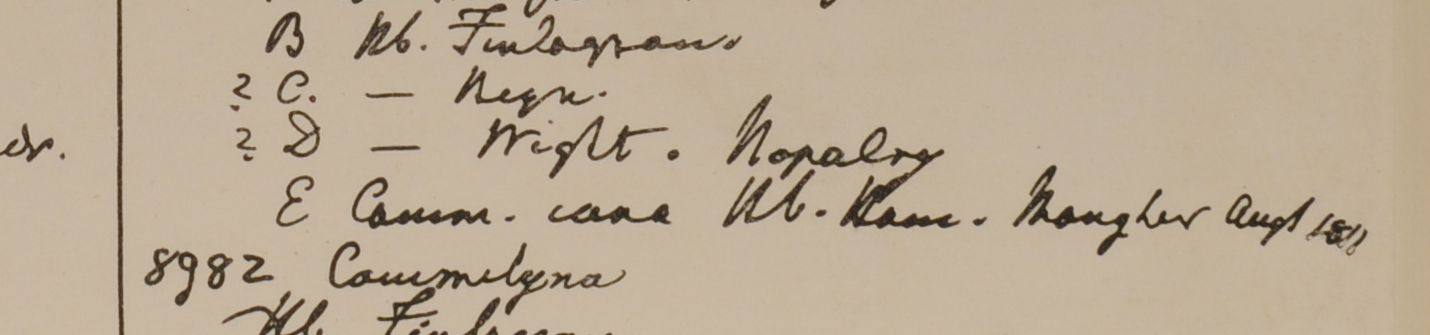 B Hb. Finlayson.
? C. — Heyn.
dr.
? D — Wight. Nopalry
E Comm. cana Hb. Ham. Mongher Augt 1811
8982 Commelyna
Hb. Finlayson